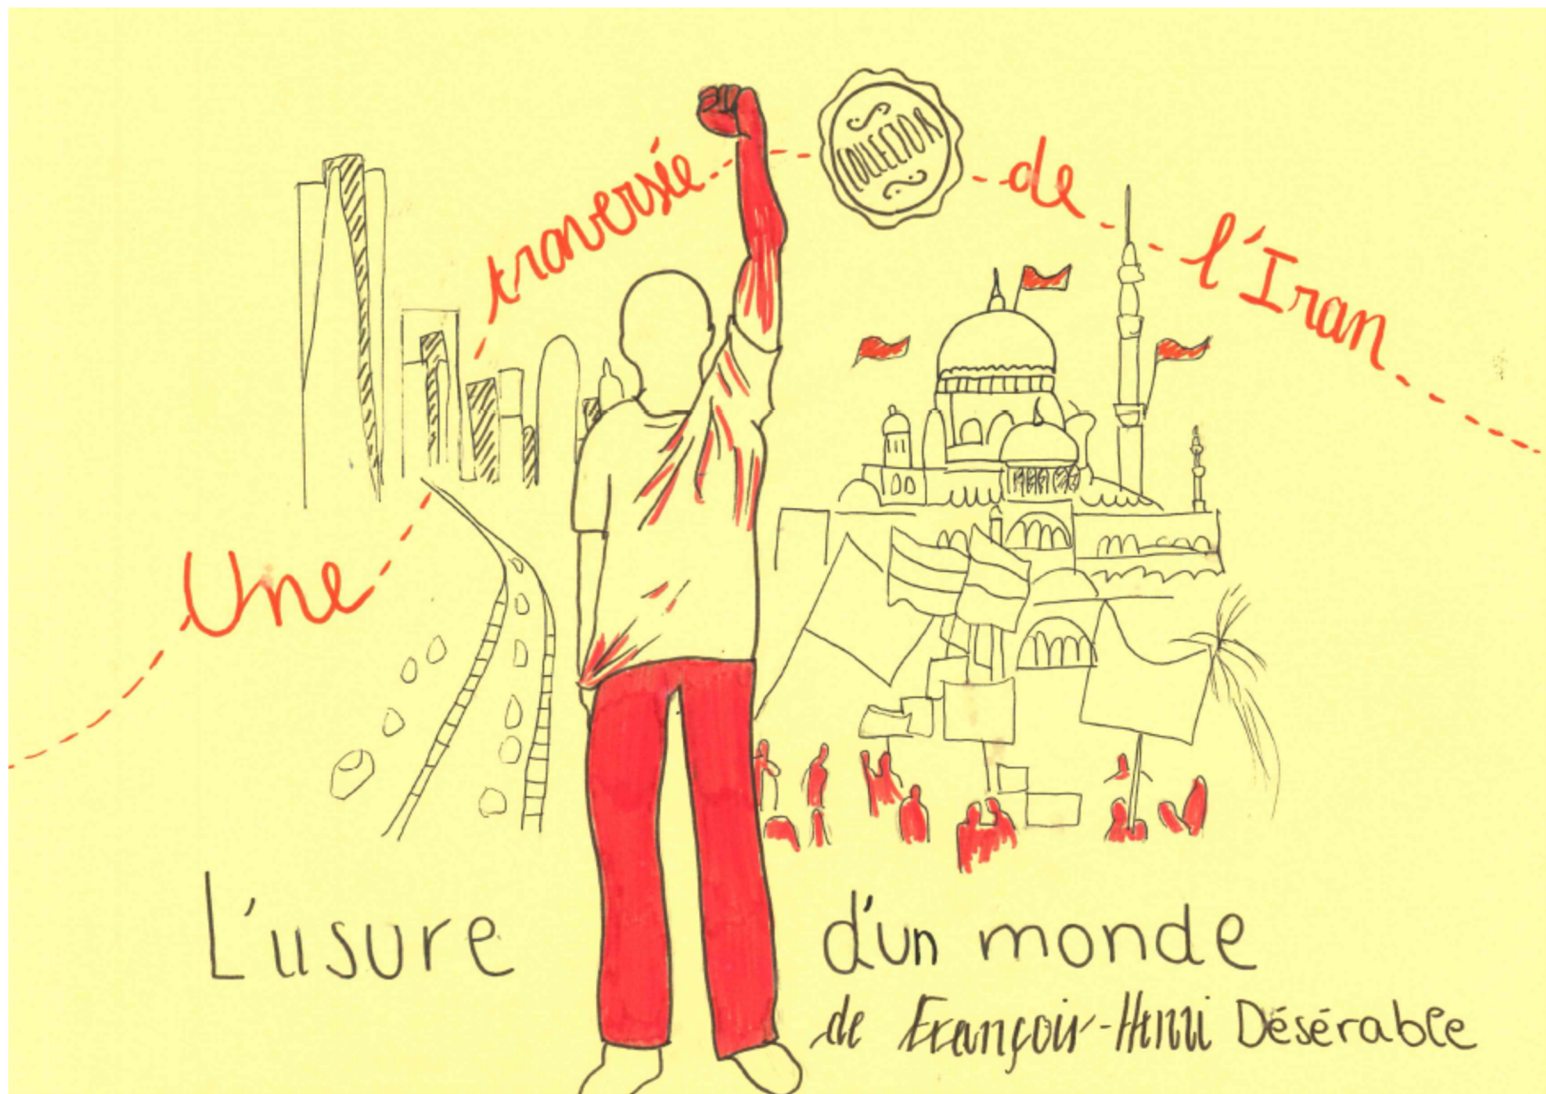 Une traversée de l'Iran
COLLECTOR
L'usure d'un monde
de François-Henri Désérable